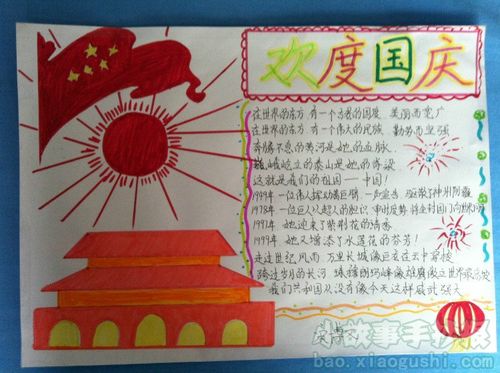 欢度国庆
在世界的东方 有一个古老的国度 美丽而宽广
在世界的东方 有一个伟大的民族 勤劳而坚强
奔腾不息的黄河是她的血脉
巍峨屹立的泰山是她的脊梁
这就是我们的祖国——中国!
1949年 一位伟人挥动
1978年 一位巨人以超人的胆识
1997年 她迎来了紫荆花的清香
1999年 她又增添了水莲花的芬芳!
走过世纪风雨 万里长城像巨龙在云中穿梭
跨过岁月的长河 珠穆朗玛峰像雄鹰
我们共和国从没有像今天这样威武强大
小故事手抄报
bao.xiaogushi.com